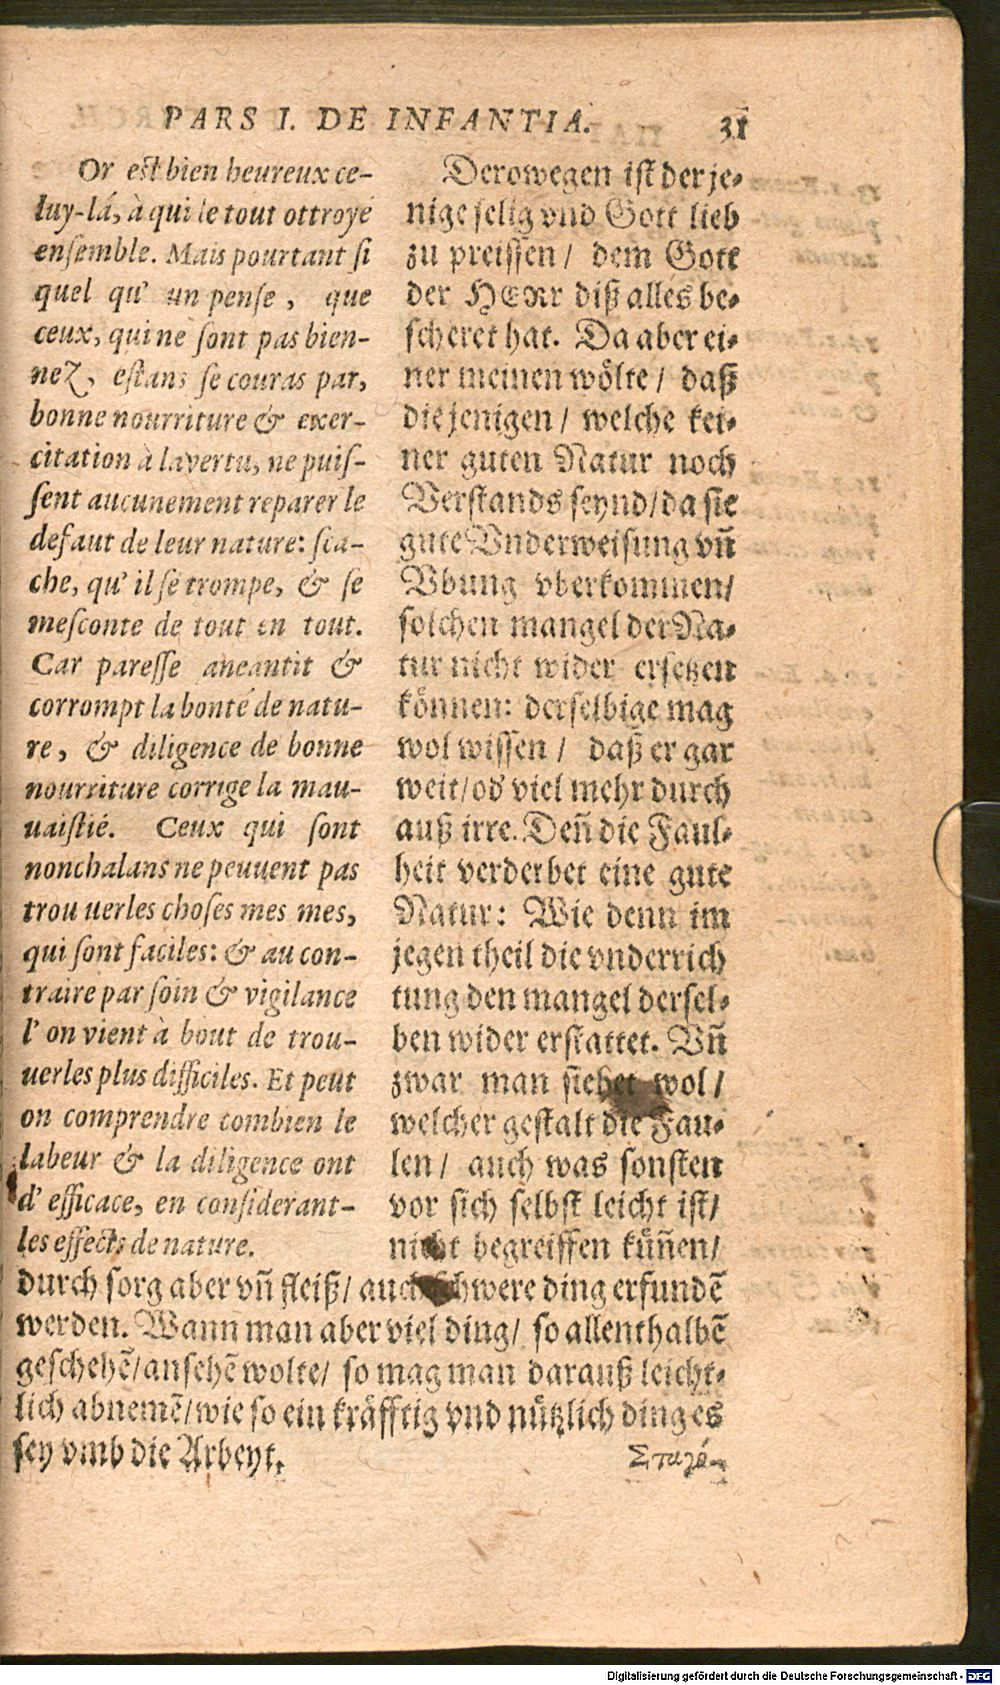 PARS I. DE INFANTIA. 31
Or est bien heureux ce-
luy-là, à qui le tout ottroyé
ensemble. Mais pourtant si
quel qu' un pense, que
ceux, qui ne sont pas bien-
nez, estans se couras par,
bonne nourriture & exer-
citation à la vertu, ne puis-
sent aucunement reparer le
defaut de leur nature: sça-
che, qu' il se trompe, & se
mesconte de tout en tout.
Car paresse aneantit &
corrompt la bonté de natu-
re, & diligence de bonne
nourriture corrige la mau-
uaistié. Ceux qui sont
nonchalans ne peuuent pas
trou uer les choses mes mes,
qui sont faciles: & au con-
traire par soin & vigilance
l' on vient à bout de trou-
uer les plus difficiles. Et peut
on comprendre combien le
labeur & la diligence ont
d' efficace, en considerant-
les effects de nature.
Derowegen ist der je-
nige selig vnd Gott lieb
zu preissen / dem Gott
der HERr diß alles be-
scheret hat. Da aber ei-
ner meinen wölte / daß
die jenigen / welche kei-
ner guten Natur noch
Verstands seynd / da sie
gute Vnderweisung vn̄
Vbung vberkommen /
solchen mangel der Na-
tur nicht wider ersetzen
können: derselbige mag
wol wissen / daß er gar
weit / od' viel mehr durch
auß irre. Den̄ die Faul-
heit verderbet eine gute
Natur: Wie denn im
jegen theil die vnderrich
tung den mangel dersel-
ben wider erstattet. Vn̄
zwar man siehet wol /
welcher gestalt die Fau-
len / auch was sonsten
vor sich selbst leicht ist /
nicht begreiffen kün̄en /
durch sorg aber vn̄ fleiß / auch schwere ding erfundē
werden. Wann man aber viel ding / so allenthalbē
geschehē / ansehē wolte / so mag man darauß leicht-
lich abnemē / wie so ein kräfftig vnd nützlich ding es
sey vmb die Arbeyt.
Σταγό-
Digitalisierung gefördert durch die Deutsche Forschungsgemeinschaft - DFG